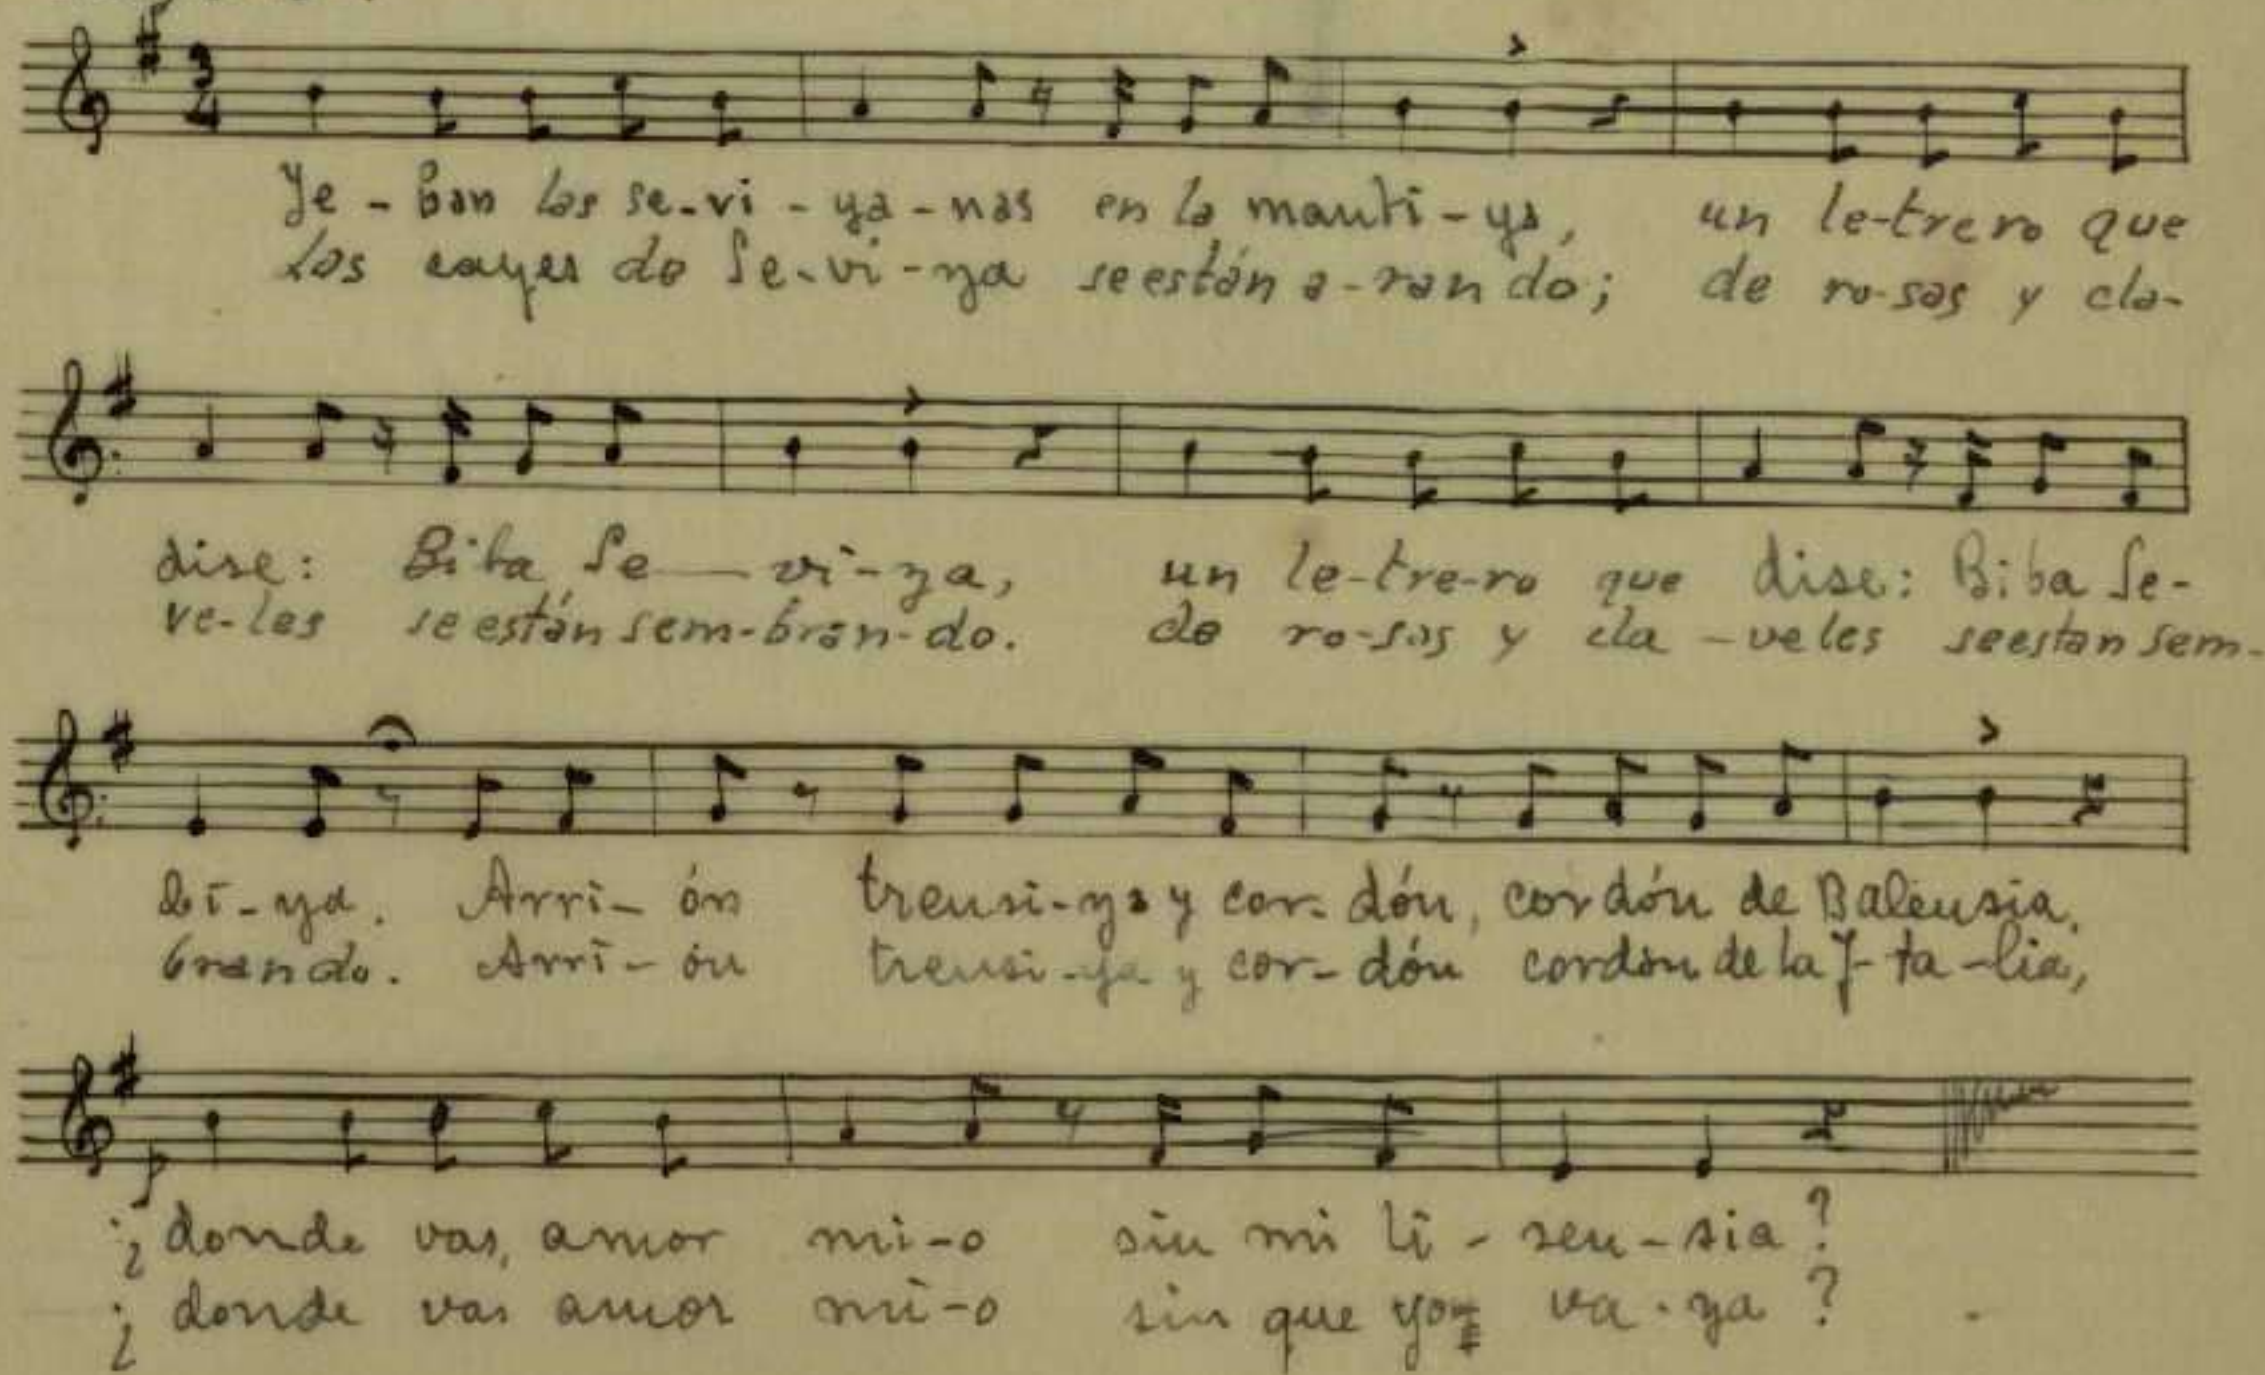 3
4
Ye-ban las se-vi-ya-nas en la manti-ya, un le-trero que
Las cayes de Se-vi-ya se están a-ran do; de ro-sas y cla-
dise: Biba Se-vi-ya, un le-tre-ro que dise: Biba Se-
ve-les se están sem-bran-do. de ro-sas y cla-veles se estan sem-
bi-ya. Arri-ón trensi-ya y cor-dón, cordón de Balensia,
brando. Arri-ón trensi-ya y cor-dón cordón de la I-ta-lia,
¿donde vas, amor mi-o sin mi li-sen-sia?
¿donde vas amor mi-o sin que yo va-ya?